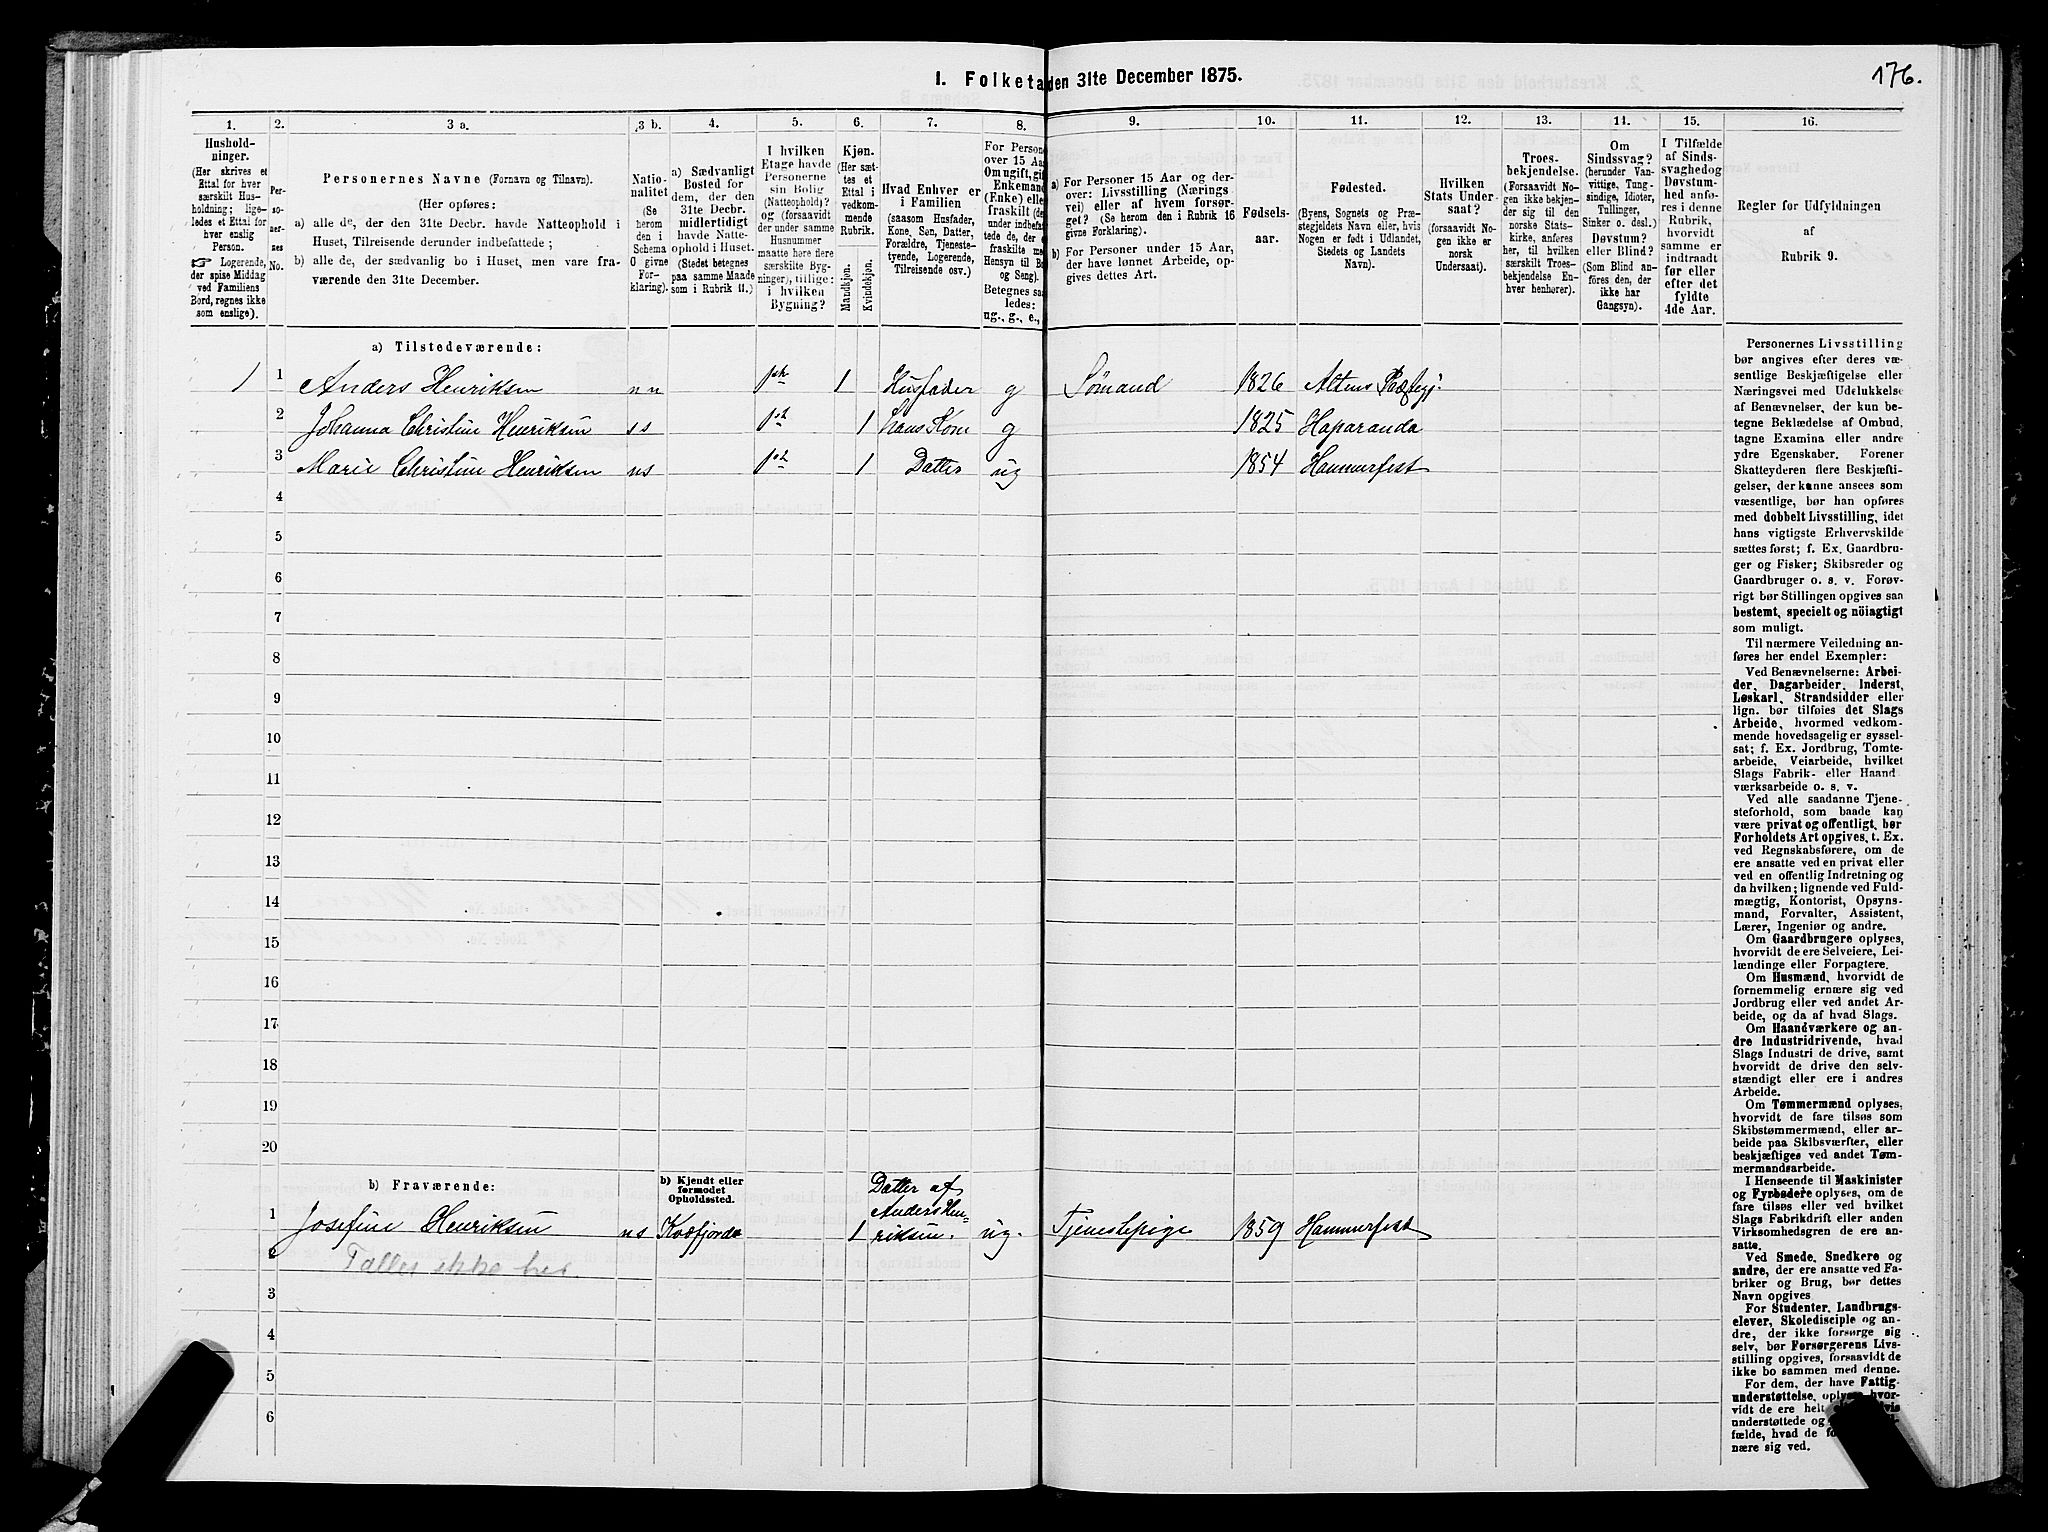 I. Folketa den 31te December 1875.
176.
1.
2.
3 a.
3 b.
4.
5.
6.
7.
8.
9.
10.
11.
12.
13.
14.
15.
16.
Hushold-
ninger.
(Her skrives et
Ettal for hver
særskilt Hus-
holdning; lige-
ledes et Ettal for
hver enslig
Person.
☞ Logerende,
der spise Middag
ved Familiens
Bord, regnes ikke
som enslige).
Per-
so-
ner-
nes
No.
Personernes Navne (Fornavn og Tilnavn).
(Her opføres:
a) alle de, der den 31te Decbr. havde Natteophold i
Huset, Tilreisende derunder indbefattede;
b) alle de, der sædvanlig bo i Huset, men vare fra-
værende den 31te December.
Natio-
nalitet
(Se
herom
den i
Schema
O givne
For-
klaring).
a) Sædvanligt
Bosted for
dem, der den
31te Decbr.
midlertidigt
havde Natte-
ophold i Huset.
(Stedet betegnes
paa samme Maade
som i Rubrik 11.)
I hvilken
Etage havde
Personerne
sin Bolig
(Natteophold)?
og (forsaavidt
der under samme
Husnummer
maatte høre flere
særskilte Byg-
ninger), tillige:
i hvilken
Bygning?
Kjøn.
(Her sæt-
tes et
Ettal i
vedkom-
mende
Rubrik.
Mandkjøn.
Kvindekjøn.
Hvad Enhver er
i Familien
(saasom Husfader,
Kone, Søn, Datter,
Forældre, Tjeneste-
tyende, Logerende,
Tilreisende osv.)
For Person
over 15 Aa
Om ugift, gi
Enkemand
(Enke) elle
fraskilt (de
under indbefat
tede de, der e
fraskilte me
Hensyn til Bo
og Seng).
Betegnes saa
ledes:
ug., g., e.,
a) For Personer 15 Aar og der-
over: Livsstilling (Nærings
vei) eller af hvem forsør-
get? (Se herom den i Rubrik 16
givne Forklaring).
b) For Personer under 15 Aar,
der have lønnet Arbeide, op-
gives dettes Art.
Fødsels-
aar.
Fødested.
(Byens, Sognets og Præ-
stegjeldets Navn eller, hvis
Nogen er født i Udlandet,
Stedets og Landets
Navn).
Hvilken
Stats Under
saat?
(forsaavidt No-
gen ikke er
norsk
Undersaat).
Troes-
bekjendelse.
(Forsaavidt No-
gen ikke bekjen-
der sig til den
norske Stats-
kirke, anføres
her, til hvilken
særskilt Troes-
bekjendelse En-
hver henhører).
Om
Sindssvag?
(herunder Van-
vittige, Tung-
sindige, Idioter,
Tullinger,
Sinker o. desl.)
Døvstum?
eller Blind?
(Som Blind an-
føres den, der
ikke har
Gangsyn).
I Tilfælde
af Sinds-
svaghed og
Døvstum-
hed anfø-
res i denne
Rubrik,
hvorvidt
samme er
indtraadt
før eller
efter det
fyldte
4de Aar.
Regler for Udfyldningen
af
Rubrik 9.
a) Tilstedeværende:
1 1 Anders Henriksen nn 1 Husfader g Sømand 1826 Altens
2 Johanna Christine Henriksen ss 1 hans Kone g 1825 Haparanda
3 Marie Christine Henriksen ns 1 Datter ug 1854 Hammerfest
4
5
6
7
8
9
10
11
12
13
14
15
16
17
18
19
20
b) Fraværende:
b) Kjendt eller
formodet
Opholdssted.
Datter af
Anders Hen=
1 Josefine Henriksen ns Kvæfjorde 1 riksen. ug. Tjenestepige 1859 Hammerfest
2
3
4
5
6
Personernes Livsstilling
bør angives efter deres væ-
sentlige Beskjæftigelse eller
Næringsvei med Udelukkelse
af Benævnelser, der kun be-
tegne Beklædelse af Ombud,
tagne Examina eller andre
ydre Egenskaber. Forener
Skatteyderen flere Beskjæfti-
gelser, der kunne ansees som
væsentlige, bør han opføres
med dobbelt Livsstilling, idet
hans vigtigste Erhvervskilde
sættes først; f. Ex. Gaardbru-
ger og Fisker; Skibsreder og
Gaardbruger o. s. v. Forøv-
rigt bør Stillingen opgives saa
bestemt, specielt og nöiagtigt
som muligt.
Til nærmere Veiledning an-
føres her endel Exempler:
Ved Benævnelserne: Arbei-
der, Dagarbeider, Inderst,
Løskarl, Strandsidder eller
lign. bør tilføies det Slags
Arbeide, hvormed vedkom-
mende hovedsagelig er syssel-
sat; f. Ex. Jordbrug, Tomte-
arbeide, Veiarbeide, hvilket
Slags Fabrik- eller Haand
værksarbeide o. s. v.
Ved alle saadanne Tjene-
steforhold, som baade kan
være privat og offentligt, bør
Forholdets Art opgives, t. Ex.
ved Regnskabsførere, om de
ere ansatte ved en privat eller
ved en offentlig Indretning og
da hvilken; lignende ved Fuld-
mægtig, Kontorist, Opsyns-
mand, Forvalter, Assistent,
Lærer, Ingeniør og andre.
Om Gaardbrugere oplyses,
hvorvidt de ere Selveiere, Lei-
lændinge eller Forpagtere.
Om Husmænd, hvorvidt de
fornemmelig ernære sig ved
Jordbrug eller ved andet Ar-
beide, og da af hvad Slags.
Om Haandværkere og an-
dre Industridrivende, hvad
Slags Industri de drive, samt
hvorvidt de drive den selv-
stændigt eller ere i andres
Arbeide.
Om Tømmermænd oplyses,
hvorvidt de fare tilsøs som
Skibstømmermænd, eller ar-
beide paa Skibsværfter, eller
beskjæftiges ved andet Tøm-
mermandsarbeide.
I Henseende til Maskinister
og Fyrbødere oplyses, om de
fare tilsøs eller ved hvilket
Slags Fabrikdrift eller anden
Virksomhedsgren de ere an-
satte.
Ved Smede, Snedkere og
andre, der ere ansatte ved Fa-
briker og Brug, bør dettes
Navn opgives
For Studenter, Landbrugs-
elever, Skoledisciple og an-
dre, der ikke forsørge sig
selv, bør Forsørgerens Livs-
stilling opgives, forsaavidt de
ikke bo sammen med denne.
For dem, der have Fattig-
understøttelse, oplyses hvor-
vidt de ere helt
understøttede og
fælde, hvad de
nære sig ved.